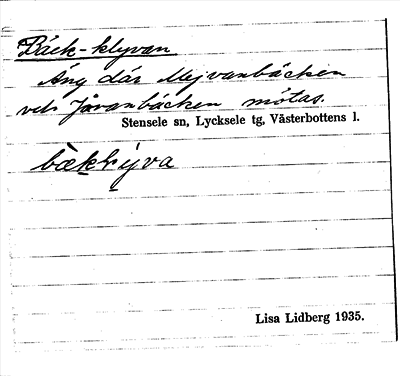 Bäck-klyvan
Äng där Mejvanbäcken
och Jovanbäcken mötas.
Stensele sn, Lycksele tg, Västerbottens l.
bækḷyva
Lisa Lidberg 1935.